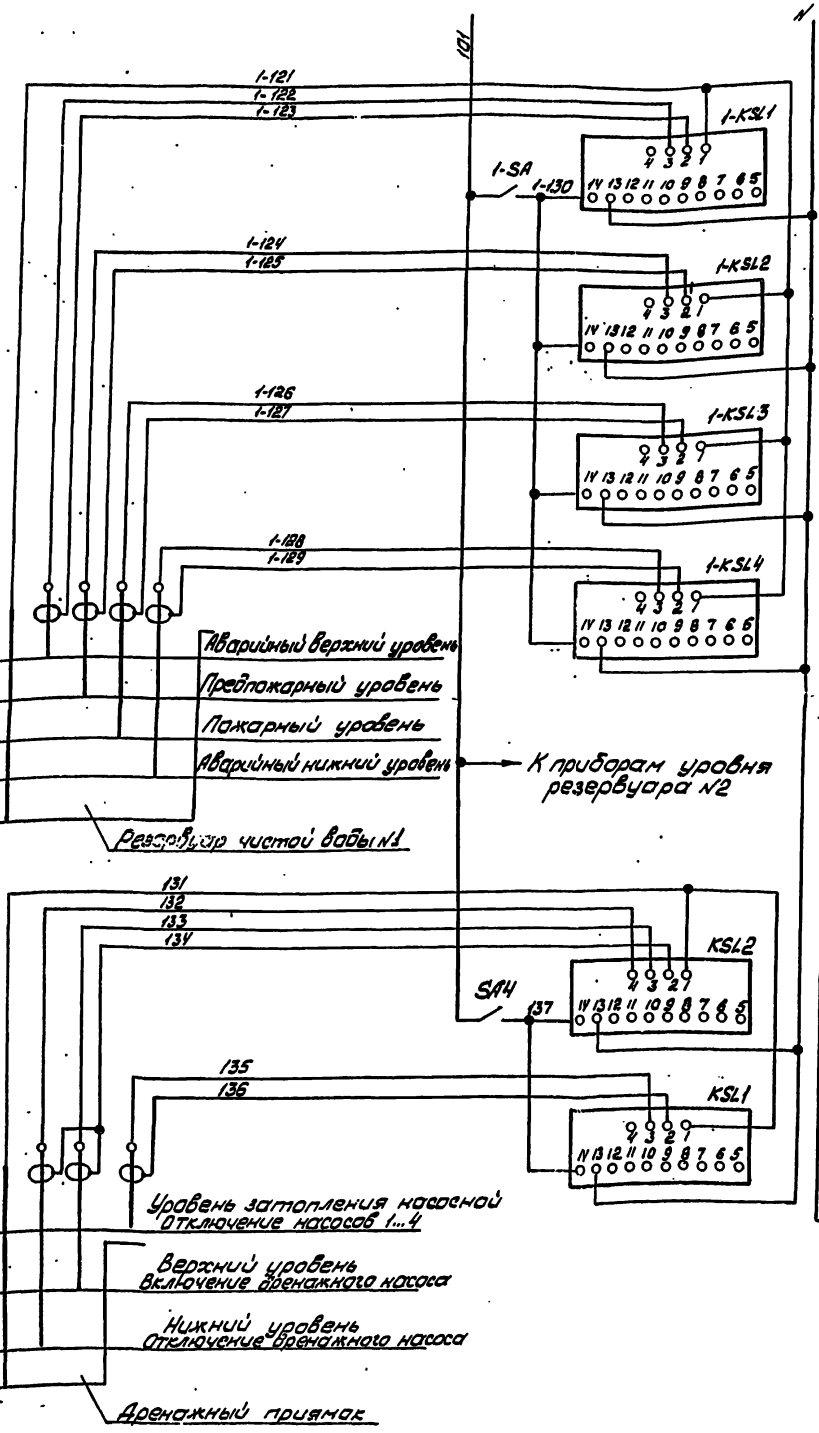 101
N
1-121
1-122
1-123
1-KSL1
4 3 2 1
1-SA
1-130
14 13 12 11 10 9 8 7 6 5
1-124
1-125
1-KSL2
4 3 2 1
14 13 12 11 10 9 8 7 6 5
1-126
1-127
1-KSL3
4 3 2 1
14 13 12 11 10 9 8 7 6 5
1-128
1-129
1-KSL4
4 3 2 1
14 13 12 11 10 9 8 7 6 5
Аварийный верхний уровень
Предпожарный уровень
Пожарный уровень
Аварийный нижний уровень
К приборам уровня
резервуара N2
Резервуар чистой воды N1
131
132
133
134
KSL2
4 3 2 1
SA4
137
14 13 12 11 10 9 8 7 6 5
135
136
KSL1
4 3 2 1
14 13 12 11 10 9 8 7 6 5
Уровень затопления насосной
Отключение насосов 1...4
Верхний уровень
Включение дренажного насоса
Нижний уровень
Отключение дренажного насоса
Дренажный приямок